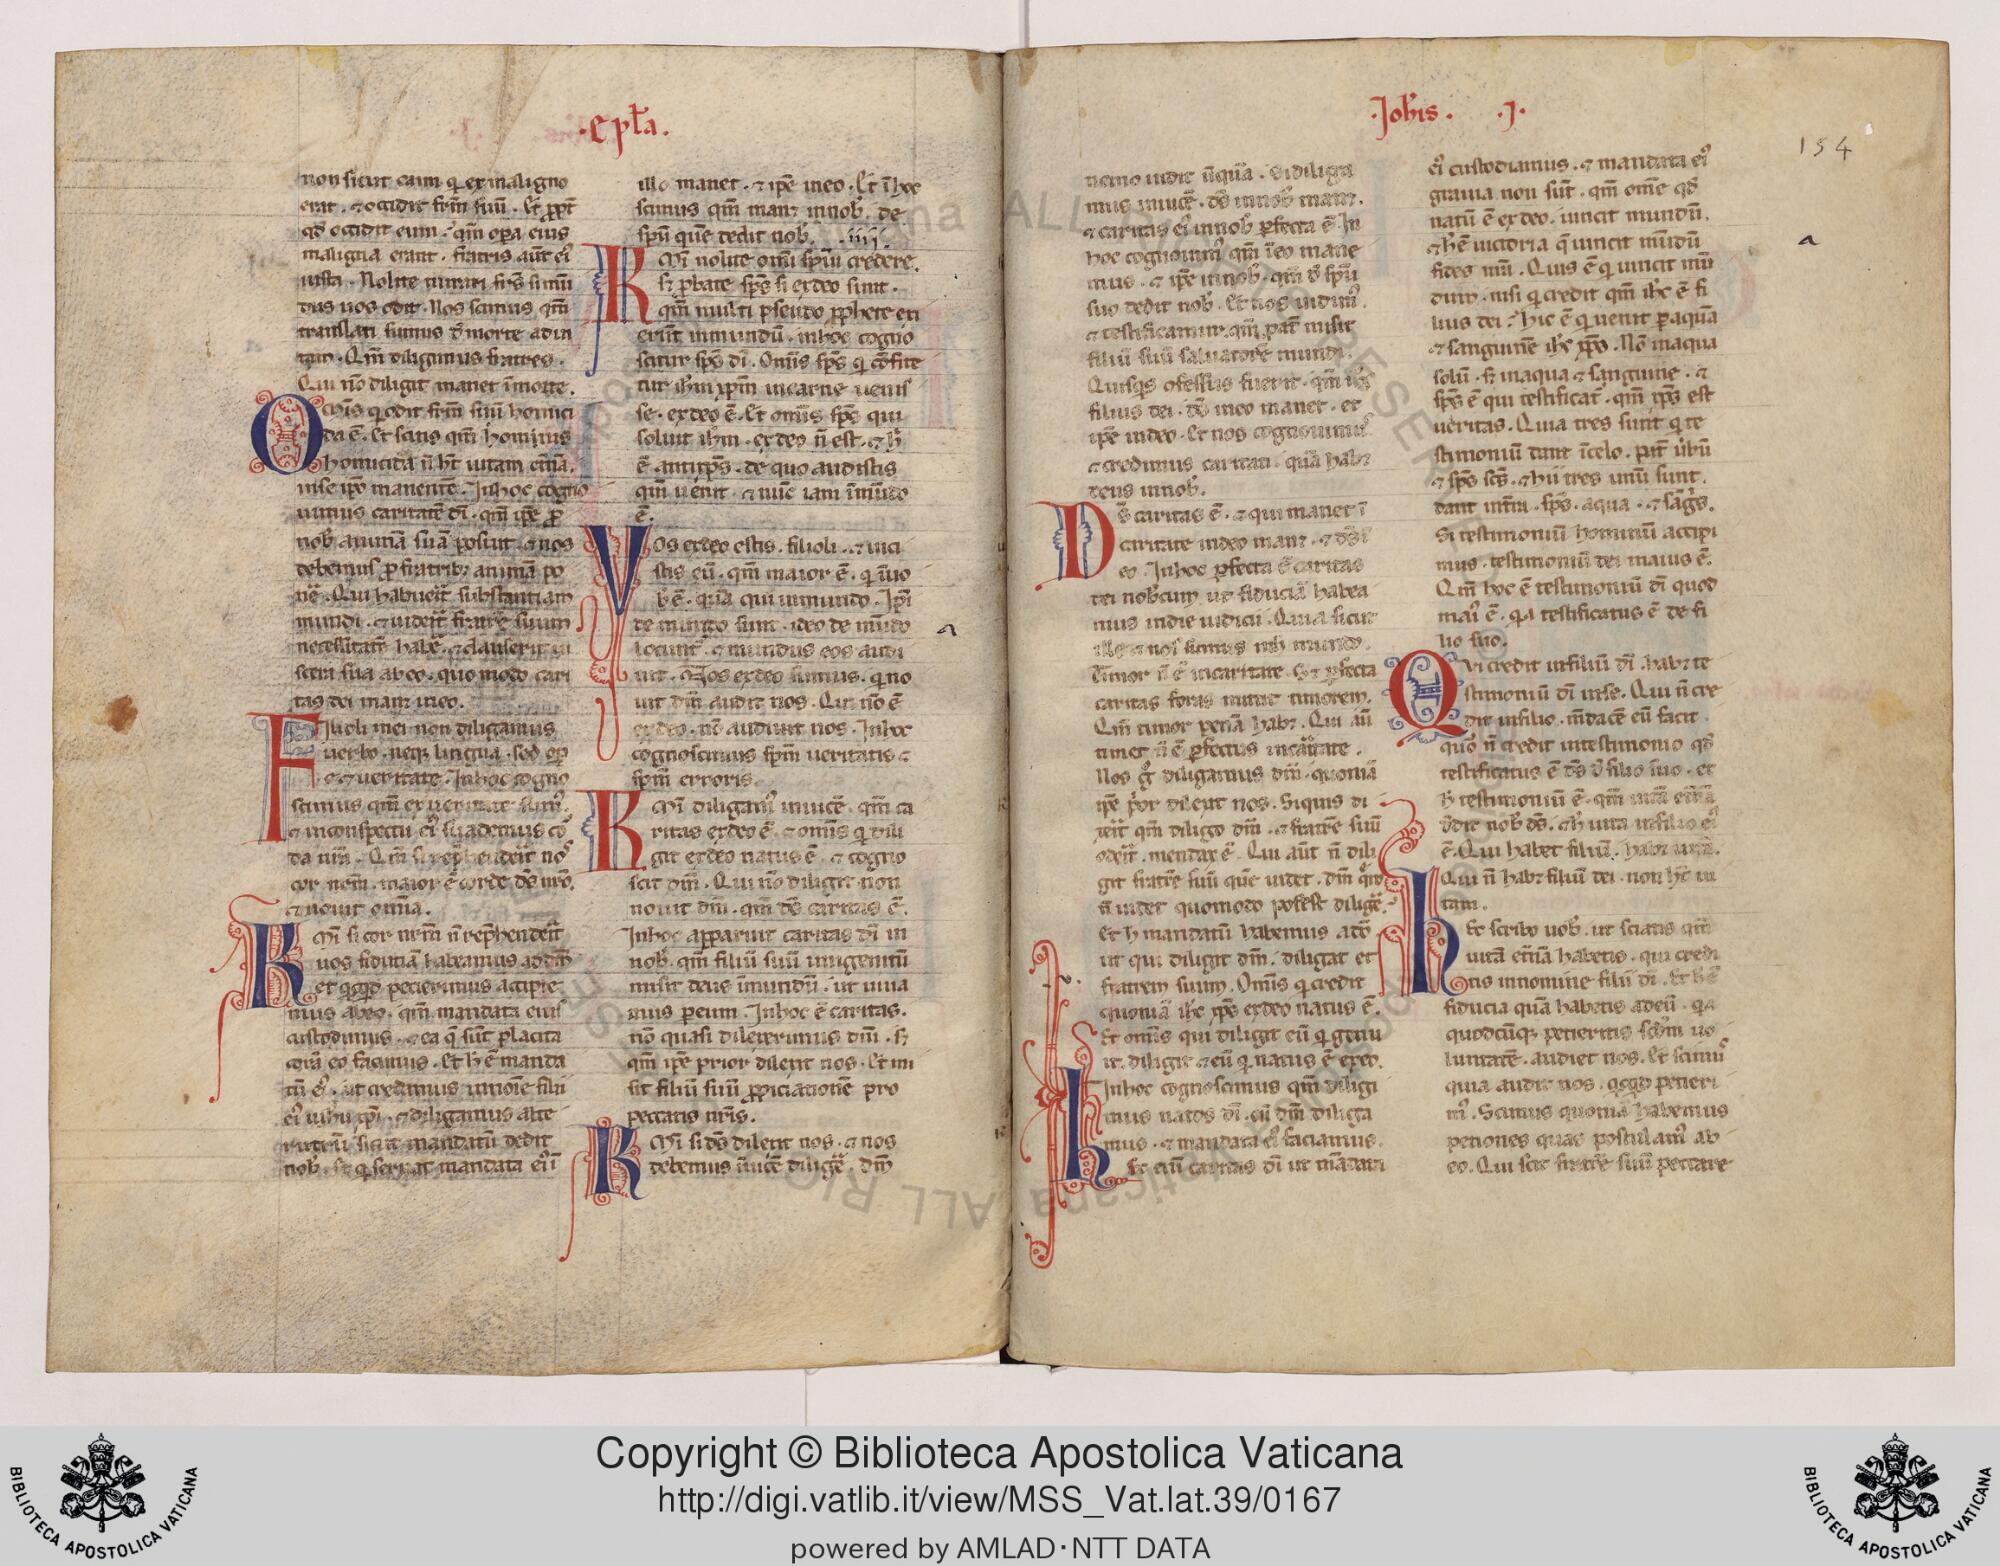 .Epła.
non sicut caim q̇ ex maligno
erat . ⁊ occidit frm̄ suū . Et ꝓpt̄
qd̄ occidit eum . qm̄ opa eius
maligna erant . fratris aūt ei᾽
iusta . Nolite mirari frs̄ si mū
dus uos odit . Nos scimus qm̄
translati sumus d̄ morte ad ui
tam . Qm̄ diligimus fratres .
Qui nō diligit manet ī morte .
Omīs q̇ odit frm̄ suū homici
da ē . Et scitis qm̄ homīus
homicida n̄ ht̄ uitam et̄nā .
in se ipō manentē . In hoc cogno
uimus caritatē dī . qm̄ ipē ꝓ
nob̄ animā suā posuit . ⁊ nos
debemus ꝓ fratrib; animā po
nē . Qui habuerit substantiam
mundi . ⁊ uiderit fratrē suum
necessitatē habē . ⁊ clauserit ui
scera sua ab eo . quo modo cari
tas dei manet in eo .
Filioli mei non diligamus
uerbo . neq; lingua . sed op̄
e ⁊ ueritate . In hoc cogno
scimus qm̄ ex ueritate sum᾽ .
⁊ in conspectu ei᾽ suademus co᾽
da nr̄a . Qm̄ si rep̄henderit no᾽
cor nr̄m . maior ē corde ds̄ nr̄o .
⁊ nouit omīa .
Kmi si cor nr̄m n̄ rep̄henderit
uos fiduciā habeamus ad dm̄
et qcqd petierimus accipie
mus ab eo . qm̄ mandata eius
custodimus . ⁊ ea q̄ sūt placita
corā eo facimus . Et h̄ ē manda
tū ei᾽ . ut credamus in noīe filii
ei᾽ ihu xp̄i . ⁊ diligamus alte
rutrū sicut mandatū dedit
nob̄ . Et q̇ seruat mandata ei᾽ ī
illo manet . ⁊ ipē in eo . Et ī hoc
scimus qm̄ manet in nob̄ . de
spū quē dedit nob̄ . .iiij.
Kmi nolite omī spūi credere .
s; ꝓbate sp̄s si ex deo sint .
qm̄ multi pseudo ꝓphete exi
erūt in mundū . in hoc cogno
scitur sp̄s dī . Omīs sp̄s q̇ cōfite
tur ihm̄ xp̄m in carne uenis
se . ex deo ē . Et omīs sp̄s qui
soluit ihm̄ . ex deo n̄ est . ⁊ h̄
ē antixp̄s . de quo audistis
qm̄ uenit . ⁊ nūc iam ī mūdo
ē .
Vos ex deo estis . filioli . ⁊ uici
stis eū . qm̄ maior ē . q̇ ī uo
b̄ ē . quā qui in mundo . Ip̄i
de mundo sunt . ideo de mūdo
locunt̄ . ⁊ mundus eos audi
unt . Nos ex deo sumus . q̇ no
uit dm̄ audit nos . Qui nō ē
ex deo . nō audiunt nos . In hoc
cognoscimus spm̄ ueritatis ⁊
spm̄ erroris .
Kmi diligam᾽ inuicē . qm̄ ca
ritas ex deo ē . ⁊ omīs q̇ dili
git ex deo natus ē . ⁊ cogno
scit dm̄ . Qui nō diligit . non
nouit dm̄ . qm̄ ds̄ caritas ē .
In hoc apparuit caritas dī in
nob̄ . qm̄ filiū suū unigenitū
misit deus ī mundū . ut uiua
mus p eum . In hoc ē caritas .
nō quasi dilexerimus dm̄ . s;
qm̄ ipē prior dilexit nos . Et mi
sit filiū suū ꝓpiciationē pro
peccatis nr̄is .
Kmi si ds̄ dilexit nos . ⁊ nos
debemus īuicē diligē . dm̄
.Joh̄is . .J.
154
nemo uidit ūquā . Si diliga
mus inuicē . ds̄ in nob̄ manet .
⁊ caritas ei᾽ in nob̄ pfecta ē . In
hoc cognouim᾽ qm̄ ī eo mane
mus . ⁊ ipē in nob̄ . qm̄ d̄ spū
suo dedit nob̄ . Et nos uidim᾽
⁊ testificamur . qm̄ pat̄ misit
filiū suū saluatorē mundi .
Quisqs ofessus fuerit . qm̄ ihs̄
filius dei . ds̄ in eo manet . et
ipē in deo . Et nos cognouimus᾽
⁊ credimus caritati . quā habet
deus in nob̄ .
Ds̄ caritas ē . ⁊ qui manet ī
caritate in deo manet . ⁊ ds̄ ī
eo . In hoc pfecta ē caritas
dei nob̄cum ut fiduciā habea
mus in die iudicii . Quia sicut
ille ⁊ nos sumus in h̄ mundo .
Timor n̄ ē in caritate . S; pfecta
caritas foras mittit timorem .
Qm̄ timor penā habet . Qui aūt
timet n̄ ē pfectus in caritate .
Nos g᾽ diligamus dm̄ . quoniā
ipē p̄or dilexit nos . Siquis di
xerit qm̄ diligo dm̄ . ⁊ fratrē suū
oderit . mendax ē . Qui aūt n̄ dili
git fratrē suū quē uidet . dm̄ quē
n̄ uidet quomodo potest diligē .
Et h mandatū habemus a dō .
ut qui diligit dm̄ . diligat et
fratrem suum . Omīs q̇ credit
quoniā ihc̄ xp̄s ex deo natus ē .
Et omīs qui diligit eū q̇ genu
it . diligit ⁊ eū q̇ natus ē ex eo .
In hoc cognoscimus qm̄ diligi
mus natos dī . cū dm̄ diliga
mus . ⁊ mandata ei᾽ faciamus .
hec ē eni̅ caritas dī ut mādata
ei᾽ custodiamus . ⁊ mandata ei᾽
grauia non sūt . qm̄ omē qd̄
natū ē ex deo . uincit mundū .
⁊ h̄ ē uictoria q̄ uincit mūdū
a
fides nr̄a . Quis ē q̇ uincit mū
dum . nisi q̇ credit qm̄ ihc̄ ē fi
lius dei . hic ē q̇ uenit p aquā
⁊ sanguinē ihc̄ xp̄s . Nō in aqua
solū . s; in aqua ⁊ sanguine . ⁊
sp̄s ē qui testificat̄ . qm̄ xp̄s est
ueritas . Quia tres sunt q̇ te
stimoniū dant ī celo . pat̄ ūbū
⁊ sp̄s scs̄ . ⁊ hii tres unū sunt .
dant in tr̄a . sp̄s . aqua . ⁊ sāgs̄ .
Si testimoniū hominū accipi
mus . testimoniū dei maius ē .
Qm̄ hoc ē testimoniū dī quod
mai᾽ ē . qa testificatus ē de fi
lio suo .
Qvi credit in filiū dī . habet te
stimoniū dī in se . Qui n̄ cre
dit in filio . mēdacē eū facit .
quō n̄ credit in testimonio qd̄
testificatus ē ds̄ d̄ filio suo . et
h̄ testimoniū ē . qm̄ uitā et̄nā
dedit nob̄ ds̄ . ⁊ h̄ uita in filio ei᾽
ē . Qui habet filiū . habet uitā .
Qui n̄ habet filiū dei . non ht̄ ui
tam .
Hec scribo uob̄ . ut sciatis qm̄
uitā et̄nā habetis . qui credi
tis in nomine filii dī . Et h̄ ē
fiducia quā habetis ad eū . qa
quodcūq; petieritis scdm̄ uo
luntatē . audiet nos . Et scim᾽
quia audit nos . qcqd petieri
m᾽ . Scimus quoniā habemus
petiones quas postulam᾽ ab
eo . Qui scit fratrē suū peccare
a
Copyright © Biblioteca Apostolica Vaticana
http://digi.vatlib.it/view/MSS_Vat.lat.39/0167
powered by AMLAD·NTT DATA
BIBLIOTECA APOSTOLICA VATICANA
BIBLIOTECA APOSTOLICA VATICANA